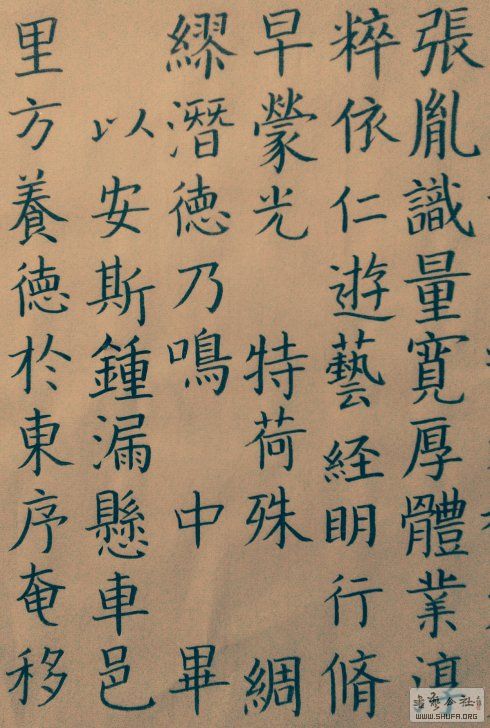 張胤識量寬厚體業淳
粹依仁遊藝経明行脩
早蒙光 特荷殊 綢
繆潛德乃鳴 中 畢
以安斯鍾漏懸車邑
里方養德於東序奄移
WWW.SHUFA.ORG